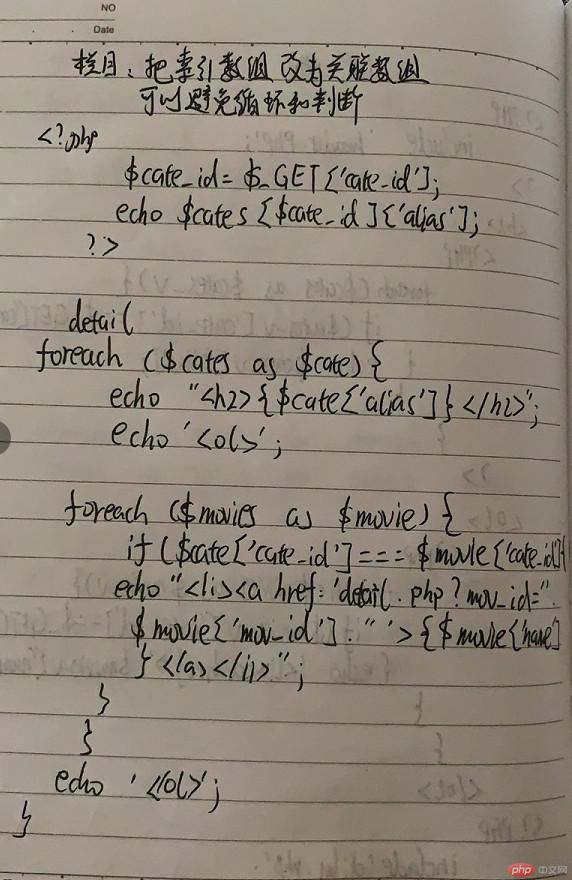 NO
Date
栏目：把索引数组改为关联数组
可以避免循环和判断
<?php
$cate_id = $_GET['cate_id'];
echo $cates[$cate_id]['alias'];
?>
detail
foreach ($cates as $cate) {
echo "<h2>{$cate['alias']}</h2>";
echo '<ol>';
foreach ($movies as $movie) {
if ($cate['cate_id'] === $movie['cate_id']{
echo "<li><a href='detail.php?mov_id=".
$movie['mov_id']."'>{$movie['name']
}</a></li>";
}
}
echo '</ol>';
}
php 中文网